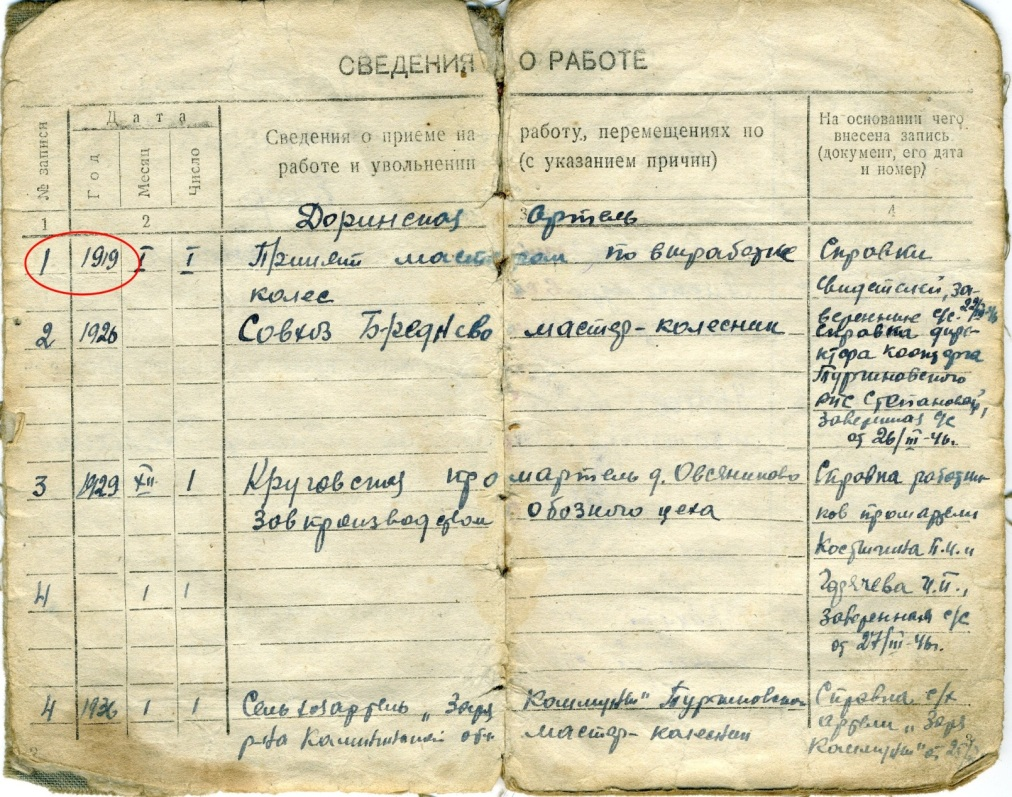 СВЕДЕНИЯ О РАБОТЕ
№ записи
Дата
Год
Месяц
Число
Сведения о приеме на работу, перемещениях по
работе и увольнении (с указанием причин)
На основании чего
внесена запись
(документ, его дата
и номер)
1 2 3 4
Доринская артель
1 1919 I I Принят мастером по выработке
колес
Справки
свидетелей, за-
веренные с/с
2 1926 Совхоз Бреднево мастер-колесник
Справка дирек-
ктора конторга
Тургиновского
РПС Степановой,
заверенная с/с
от 26/III-46г.
3 1929 XII 1 Круговская промартель д. Овсяниково
Зав производством обозного цеха
Справка работни-
ков промартели
Костыгина П.М. и
Горячева И.П.,
заверенная с/с
от 27/III-46г.
4 1 1
4 1936 1 1 Сельхозартель „Заря Коммуны" Тургиновского
р-на Калининской обл мастер-колесник
Справка с/х
артели „Заря
Коммуны" от